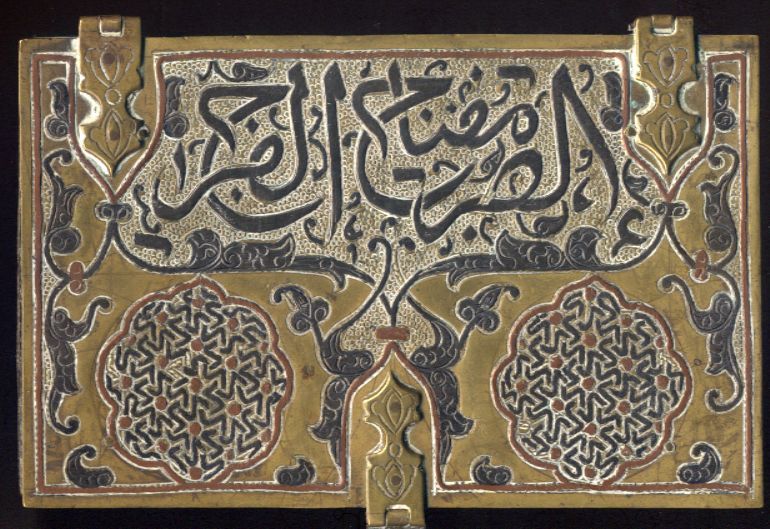 الصبر مفتاح الفرج